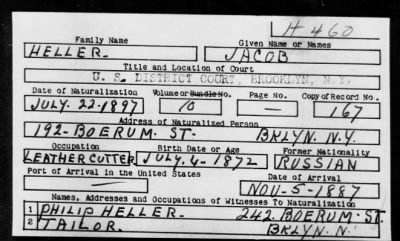 H-460
Family Name Given Name or Names
HELLER. JACOB
Title and Location of Court
U. S. DISTRICT COURT, BROOKLYN, N.Y.
Date of Naturalization Volume or Bundle No. Page No. Copy of Record No.
JULY. 22-1897 10 — 167
Address of Naturalized Person
192-BOERUM. ST. BKLYN. N.Y.
Occupation Birth Date or Age Former Nationality
LEATHERCUTTER JULY. 4-1872 RUSSIAN
Port of Arrival in the United States Date of Arrival
— NOV-5-1887
Names, Addresses and Occupations of Witnesses To Naturalization
1 PHILIP HELLER. 242 BOERUM. ST.
2 TAILOR. BKLYN. N.